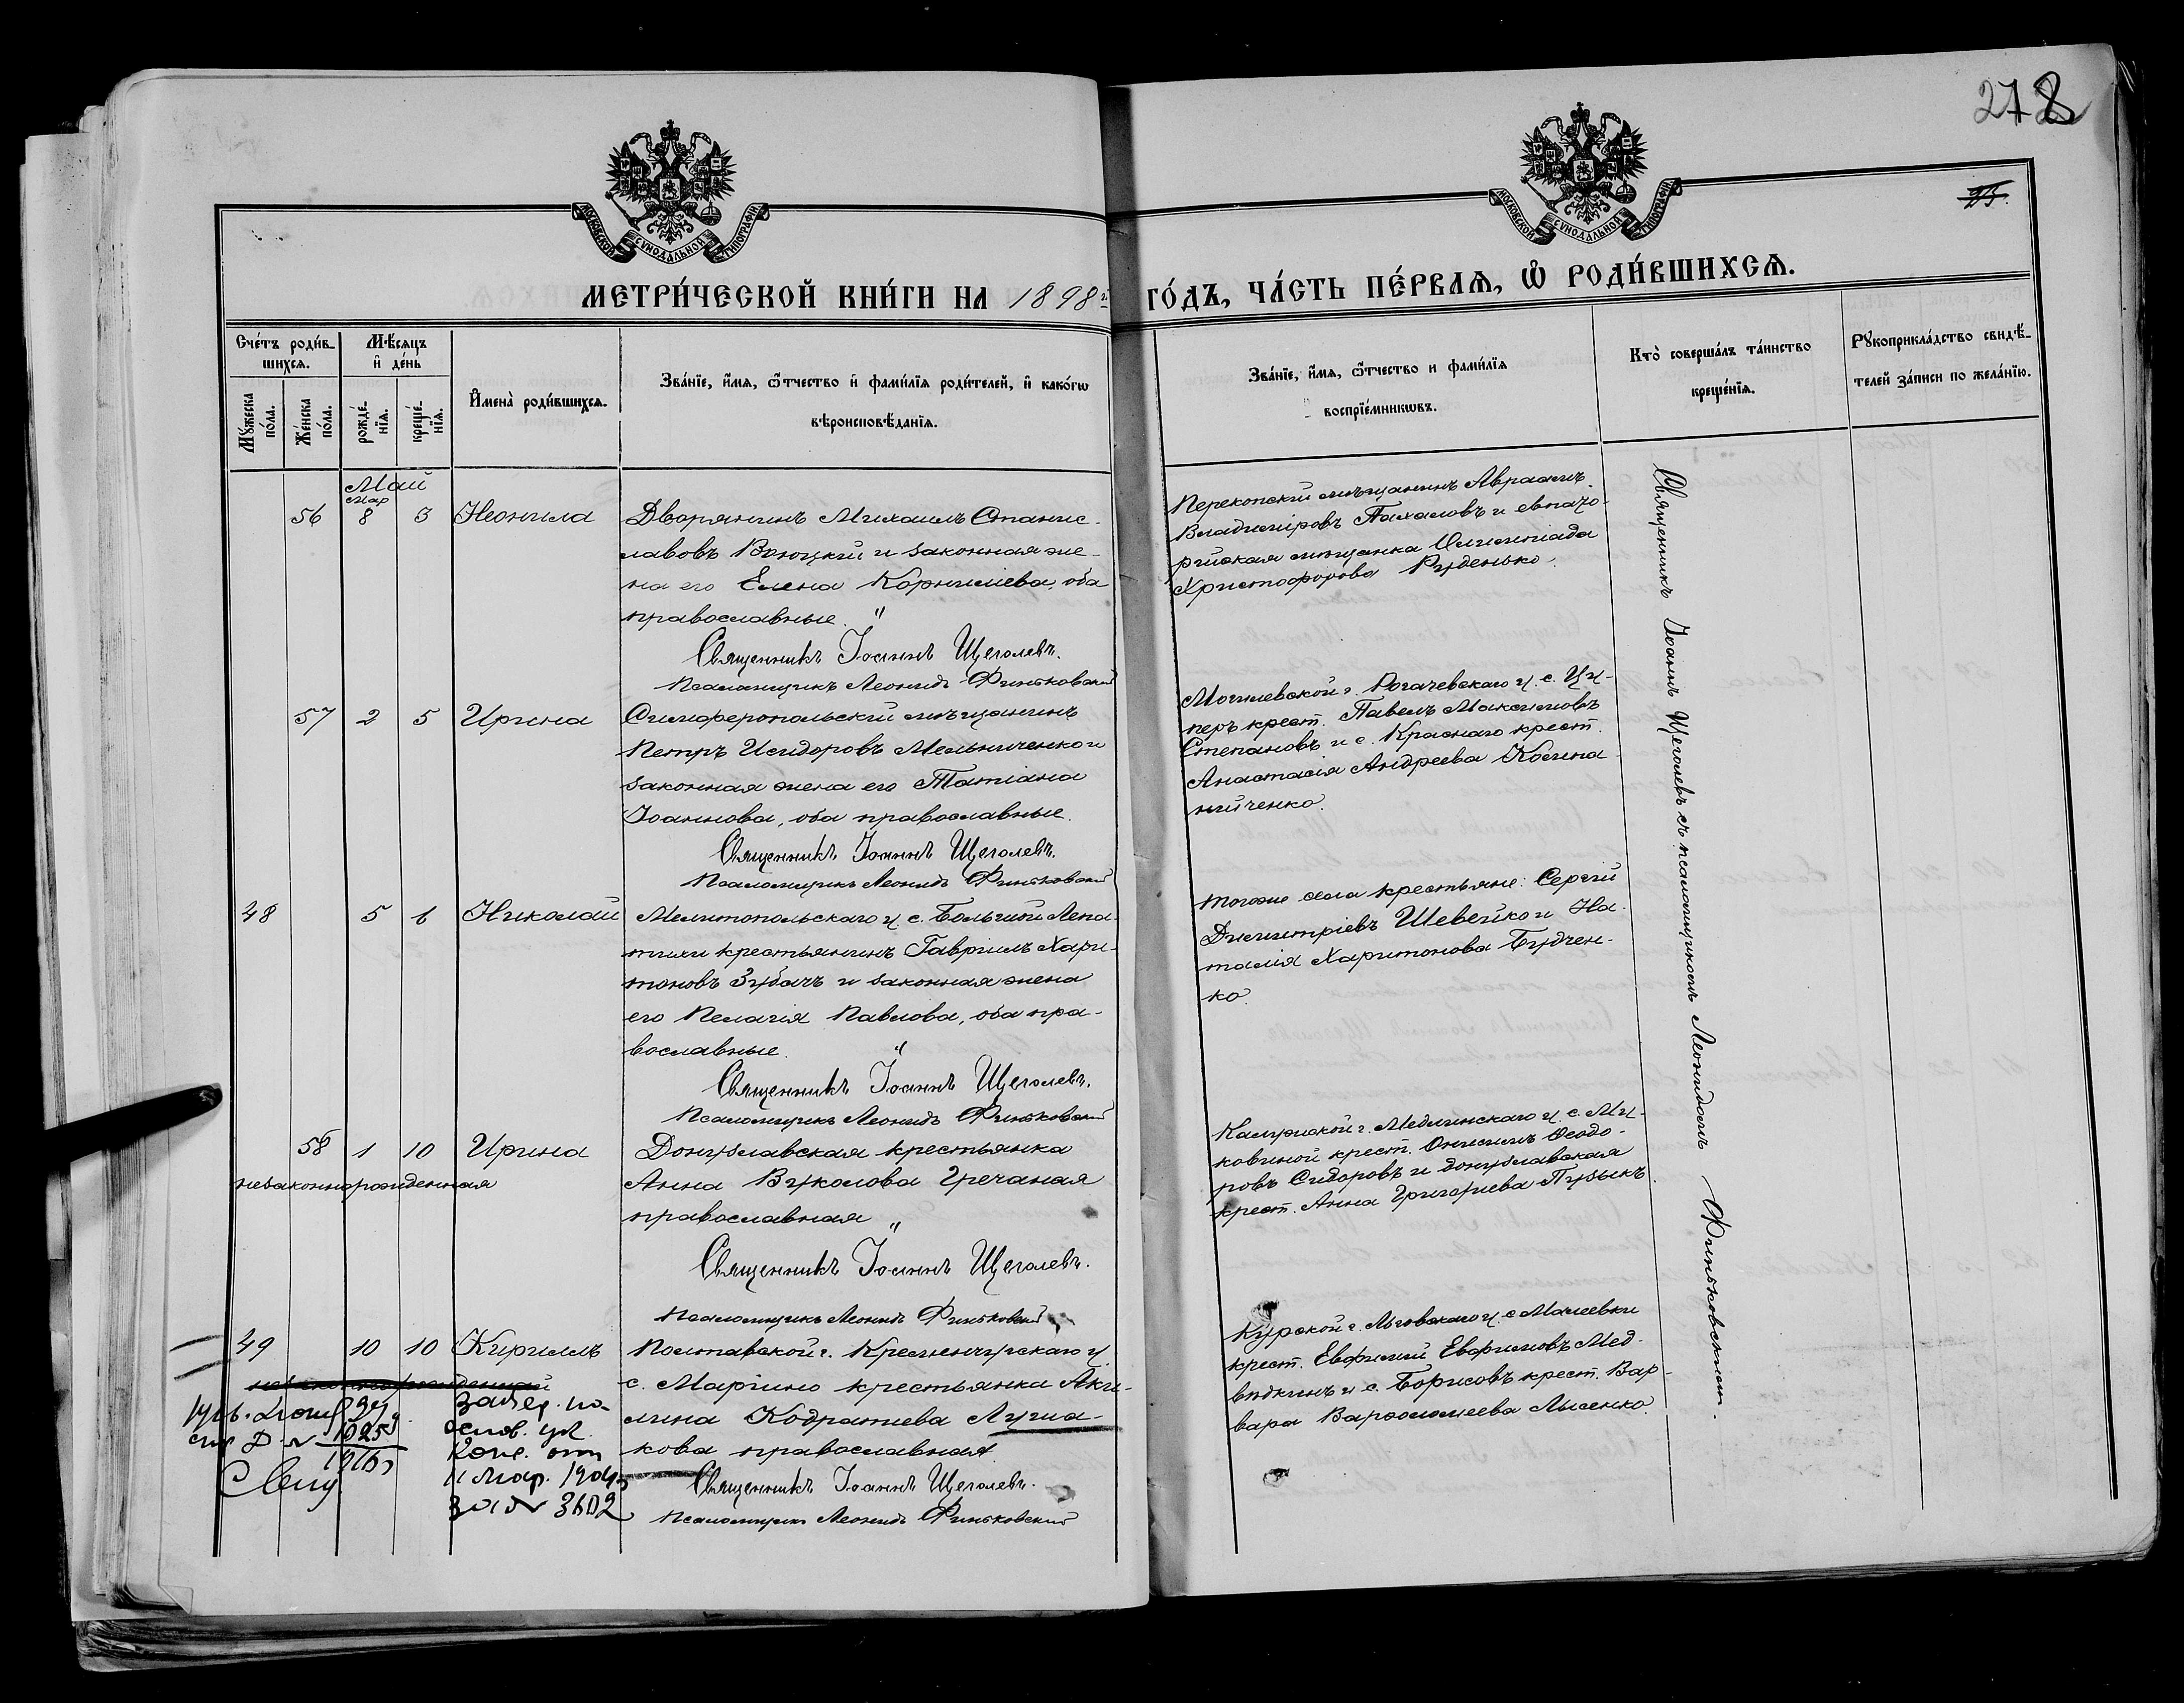 278
95.
МОСКОВСКОЙ СѴНОДАЛЬНОЙ ТИПОГРАФІИ
МОСКОВСКОЙ СѴНОДАЛЬНОЙ ТИПОГРАФІИ
МЕТРИ́ЧЕСКОЙ КНИ́ГИ НА 1898 г.
ГО́ДЪ, ЧА́СТЬ ПЕ́РВАЯ, Ѿ РОДИ́ВШИХСЯ.
Сче́тъ роди́в-
шихся.
Му́жеска по́ла.
Же́нска по́ла.
Мѣ́сяцъ
и҆ де́нь
рожде́-
нїя.
креще́-
нїя.
И҆мена̀ роди́вшихся.
Зва́нїе, и҆́мя, ѻ҆́тчество и҆ фами́лїя роди́телей, и҆ како́гѡ
вѣроисповѣ́данїя.
Зва́нїе, и҆́мя, ѻ҆́тчество и фами́лїя
воспрїе́мникѡвъ.
Кто̀ соверша́лъ та́инство
креще́нїя.
Рꙋкоприкла́дство свидѣ́-
телей за́писи по жела́нїю.
Май
Мар
56 8 3 Неонила
Дворянинъ Михаилъ Станис-
лавовъ Воюцкій и законная же-
на его Елена Корнилиева, оба
православные. "
Священникъ Іоаннъ Щеголевъ.
Псаломщикъ Леонидъ Финьковскій
Перекопскій мѣщанинъ Авраамъ
Владиміровъ Пахаловъ и евпато-
рійская мѣщанка Олимпіада
Христофорова Руденько.
57 2 5 Ирина
Симферопольскій мѣщанинъ
Петръ Исидоровъ Мельниченко и
законная жена его Татіана
Іоаннова, оба православные.
Священникъ Іоаннъ Щеголевъ.
Псаломщикъ Леонидъ Финьковскій
Могилевской г. Рогачевскаго у. с. Ци-
перъ крест. Павелъ Максимовъ
Степановъ и с. Краснаго крест.
Анастасія Андреева Косина-
нийченко.
48 5 6 Николай
Мелитопольскаго у. с. Большой Лепа-
тихи крестьянинъ Гавріилъ Хари-
тоновъ Зубачъ и законная жена
его Пелагія Павлова, оба пра-
вославные. "
Священникъ Іоаннъ Щеголевъ.
Псаломщикъ Леонидъ Финьковскій
тогоже села крестьяне: Сергій
Димитріевъ Шевейко и На-
талія Харитонова Будчен-
ко.
58 1 10 Ирина
незаконнорожденная
Донузлавская крестьянка
Анна Вуколова Гречаная
православная "
Священникъ Іоаннъ Щеголевъ.
Псаломщикъ Леонидъ Финьковскій
Калужской г. Медынскаго у. с. Ми-
ковиной крест. Онисимъ Ѳеодо-
ровъ Сидоровъ и донузлавская
крест. Анна Григорьева Пузыкъ.
49 10 10 Кириллъ
незаконнорожденный
Полтавской г. Кременчугскаго у.
с. Маріино крестьянка Аки-
лина Кодратиева Лугиа-
кова православная.
Священникъ Іоаннъ Щеголевъ.
Псаломщикъ Леонидъ Финьковскій
Курской г. Льговскаго у. с. Малеевки
крест. Евфимій Евфимовъ Мед-
вѣдкинъ и с. Борисовъ крест. Вар-
вара Варѳоломеева Лысенко.
на
основ. ук.
Конс. отъ
11 мар. 1904 г.
за № 3602
Священникъ Іоаннъ Щеголевъ съ псаломщикомъ Леонидомъ Финьковскимъ.